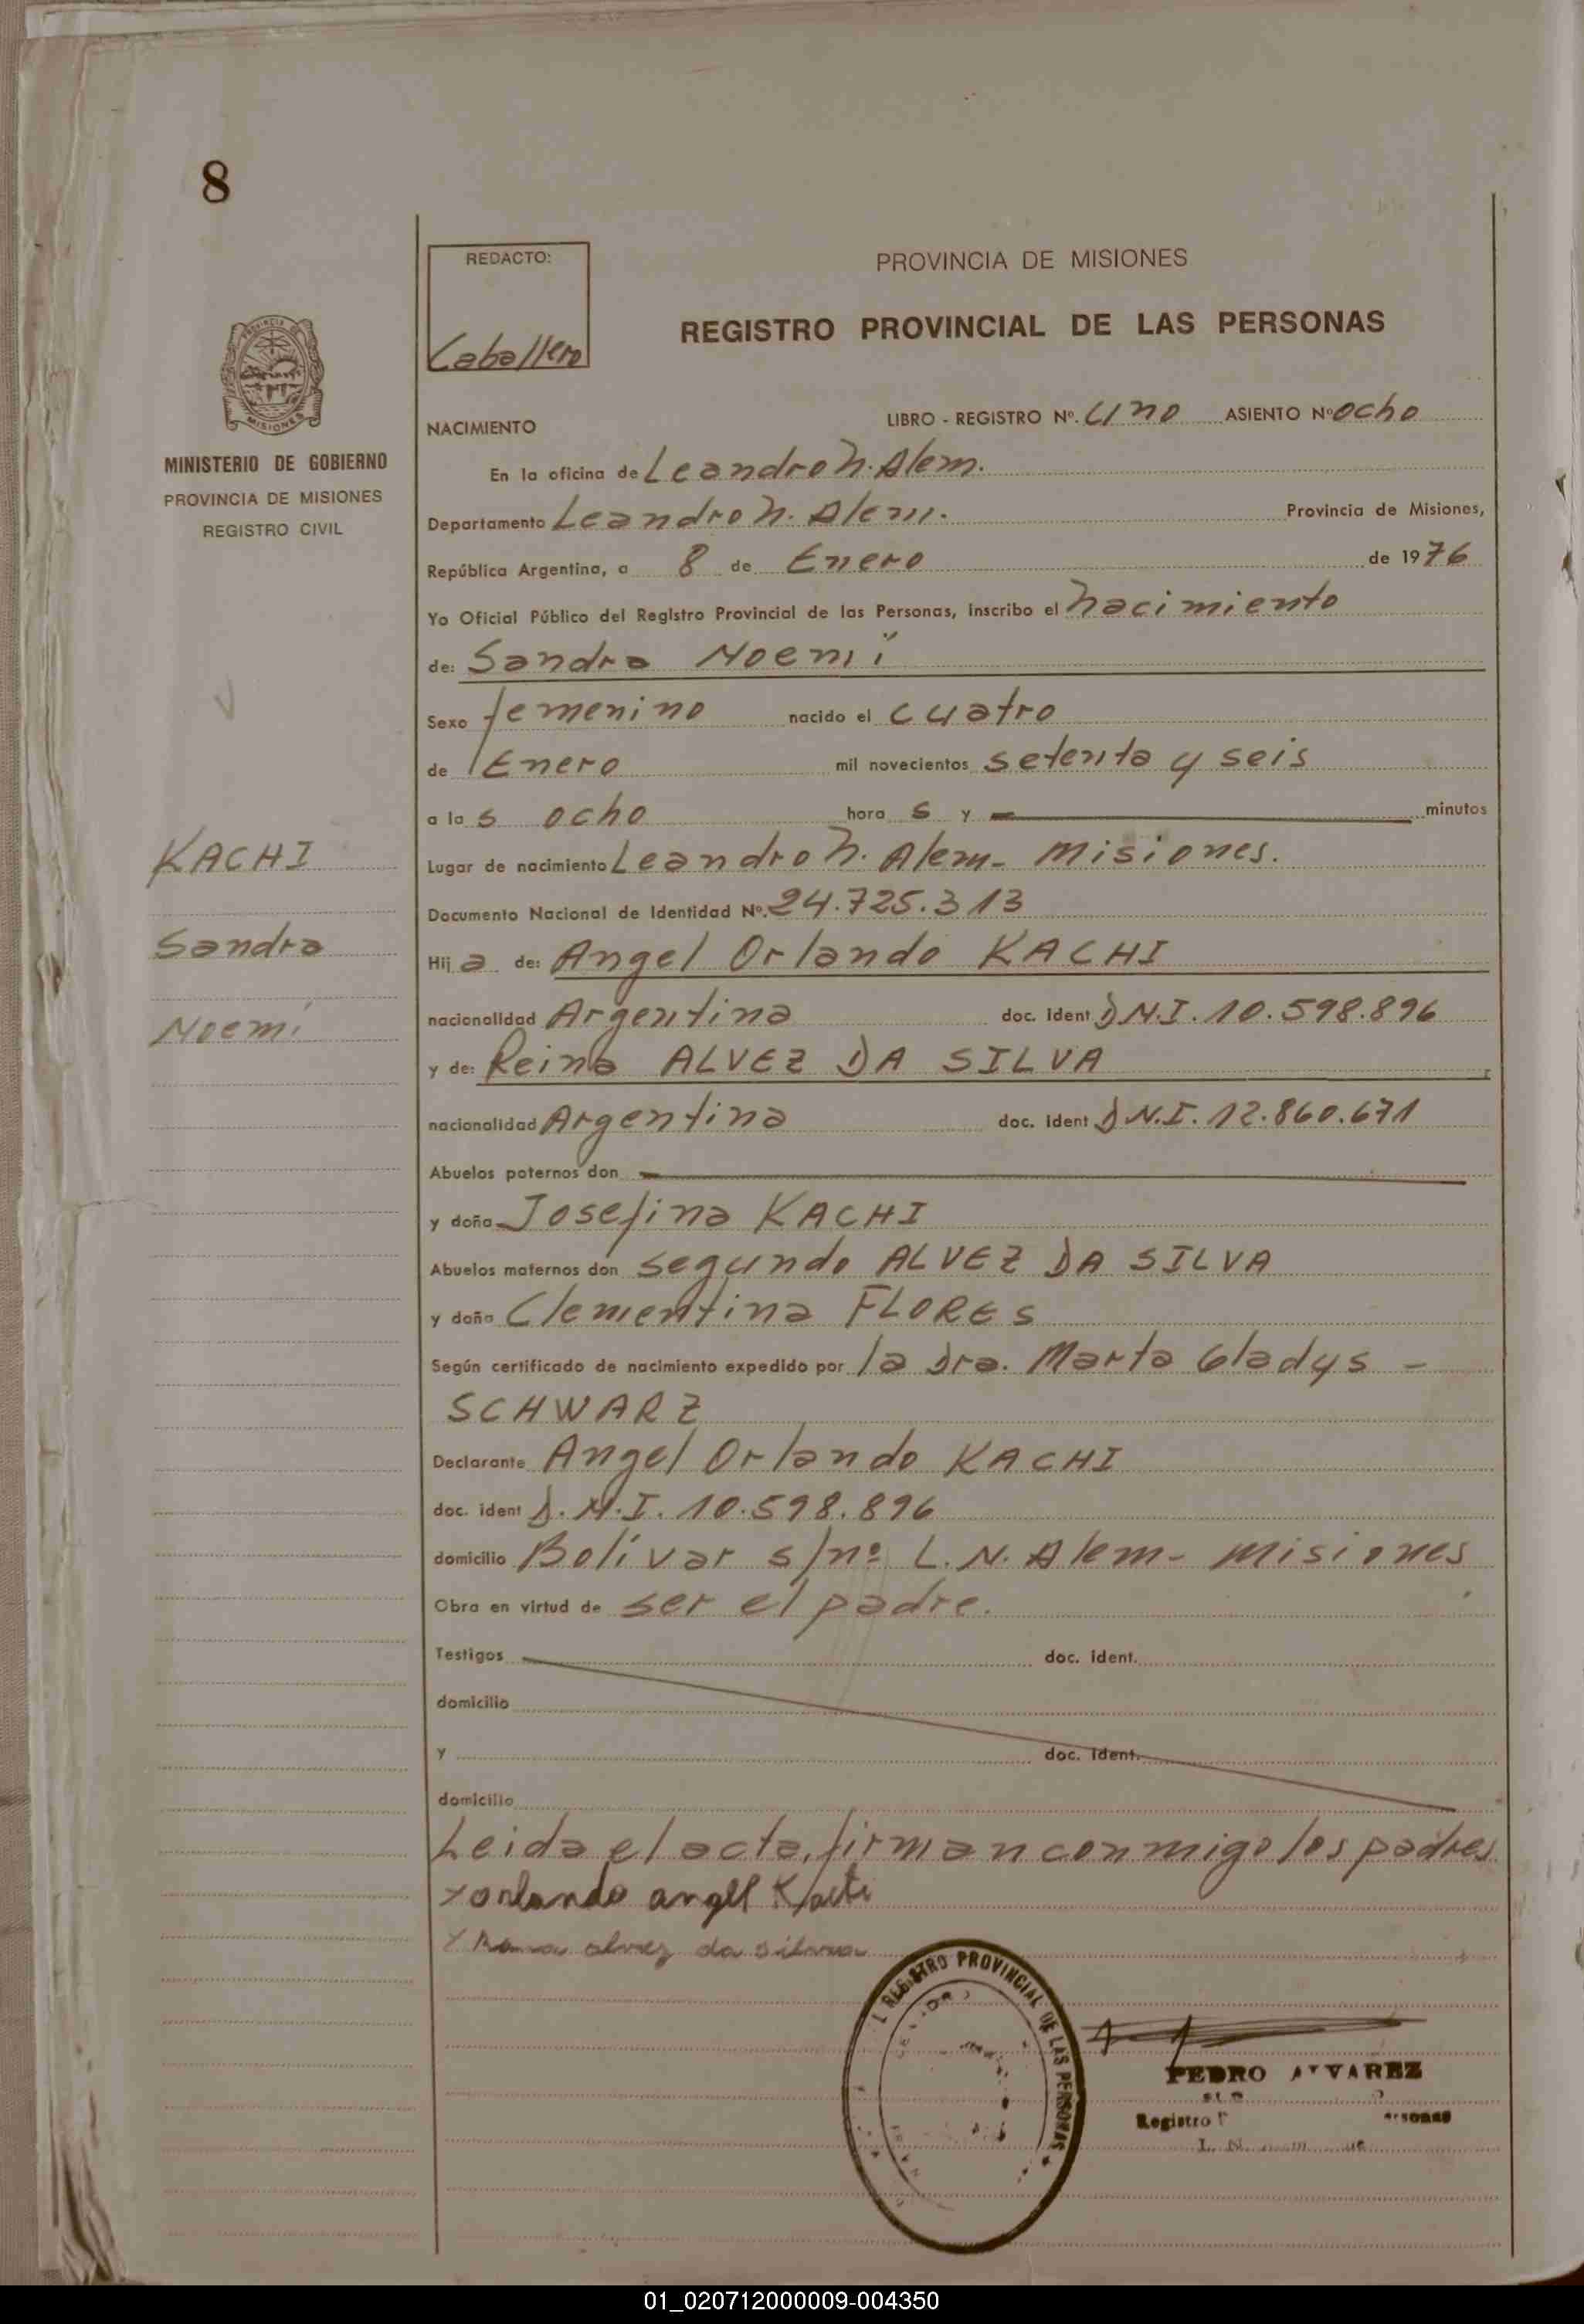 8
REDACTO:
Caballero
PROVINCIA DE MISIONES
REGISTRO PROVINCIAL DE LAS PERSONAS
PROVINCIA DE
MISIONES
MINISTERIO DE GOBIERNO
PROVINCIA DE MISIONES
REGISTRO CIVIL
KACHI
Sandra
Noemí
NACIMIENTO LIBRO - REGISTRO Nº. Uno ASIENTO Nº Ocho
En la oficina de Leandro N. Alem.
Departamento Leandro N. Alem. Provincia de Misiones,
República Argentina, a 8 de Enero de 1976
Yo Oficial Público del Registro Provincial de las Personas, inscribo el nacimiento
de: Sandra Noemí
Sexo femenino nacido el cuatro
de Enero mil novecientos setenta y seis
a las ocho horas y — minutos
Lugar de nacimiento Leandro N. Alem - Misiones.
Documento Nacional de Identidad Nº. 24.725.313
Hija de: Angel Orlando KACHI
nacionalidad Argentina doc. ident D.N.I. 10.598.896
y de: Reina ALVEZ DA SILVA
nacionalidad Argentina doc. ident D.N.I. 12.860.671
Abuelos paternos don —
y doña Josefina KACHI
Abuelos maternos don Segundo ALVEZ DA SILVA
y doña Clementina FLORES
Según certificado de nacimiento expedido por la Dra. Marta Gladys -
SCHWARZ
Declarante Angel Orlando KACHI
doc. ident D.N.I. 10.598.896
domicilio Bolívar s/nº L.N. Alem - Misiones
Obra en virtud de ser el padre.
Testigos doc. ident.
domicilio
y doc. ident.
domicilio
Leida el acta, firman conmigo los padres
x orlando angel
x alvez da silva
REGISTRO PROVINCIAL DE LAS PERSONAS
PEDRO ALVAREZ
Registro
L. N.
01_020712000009-004350